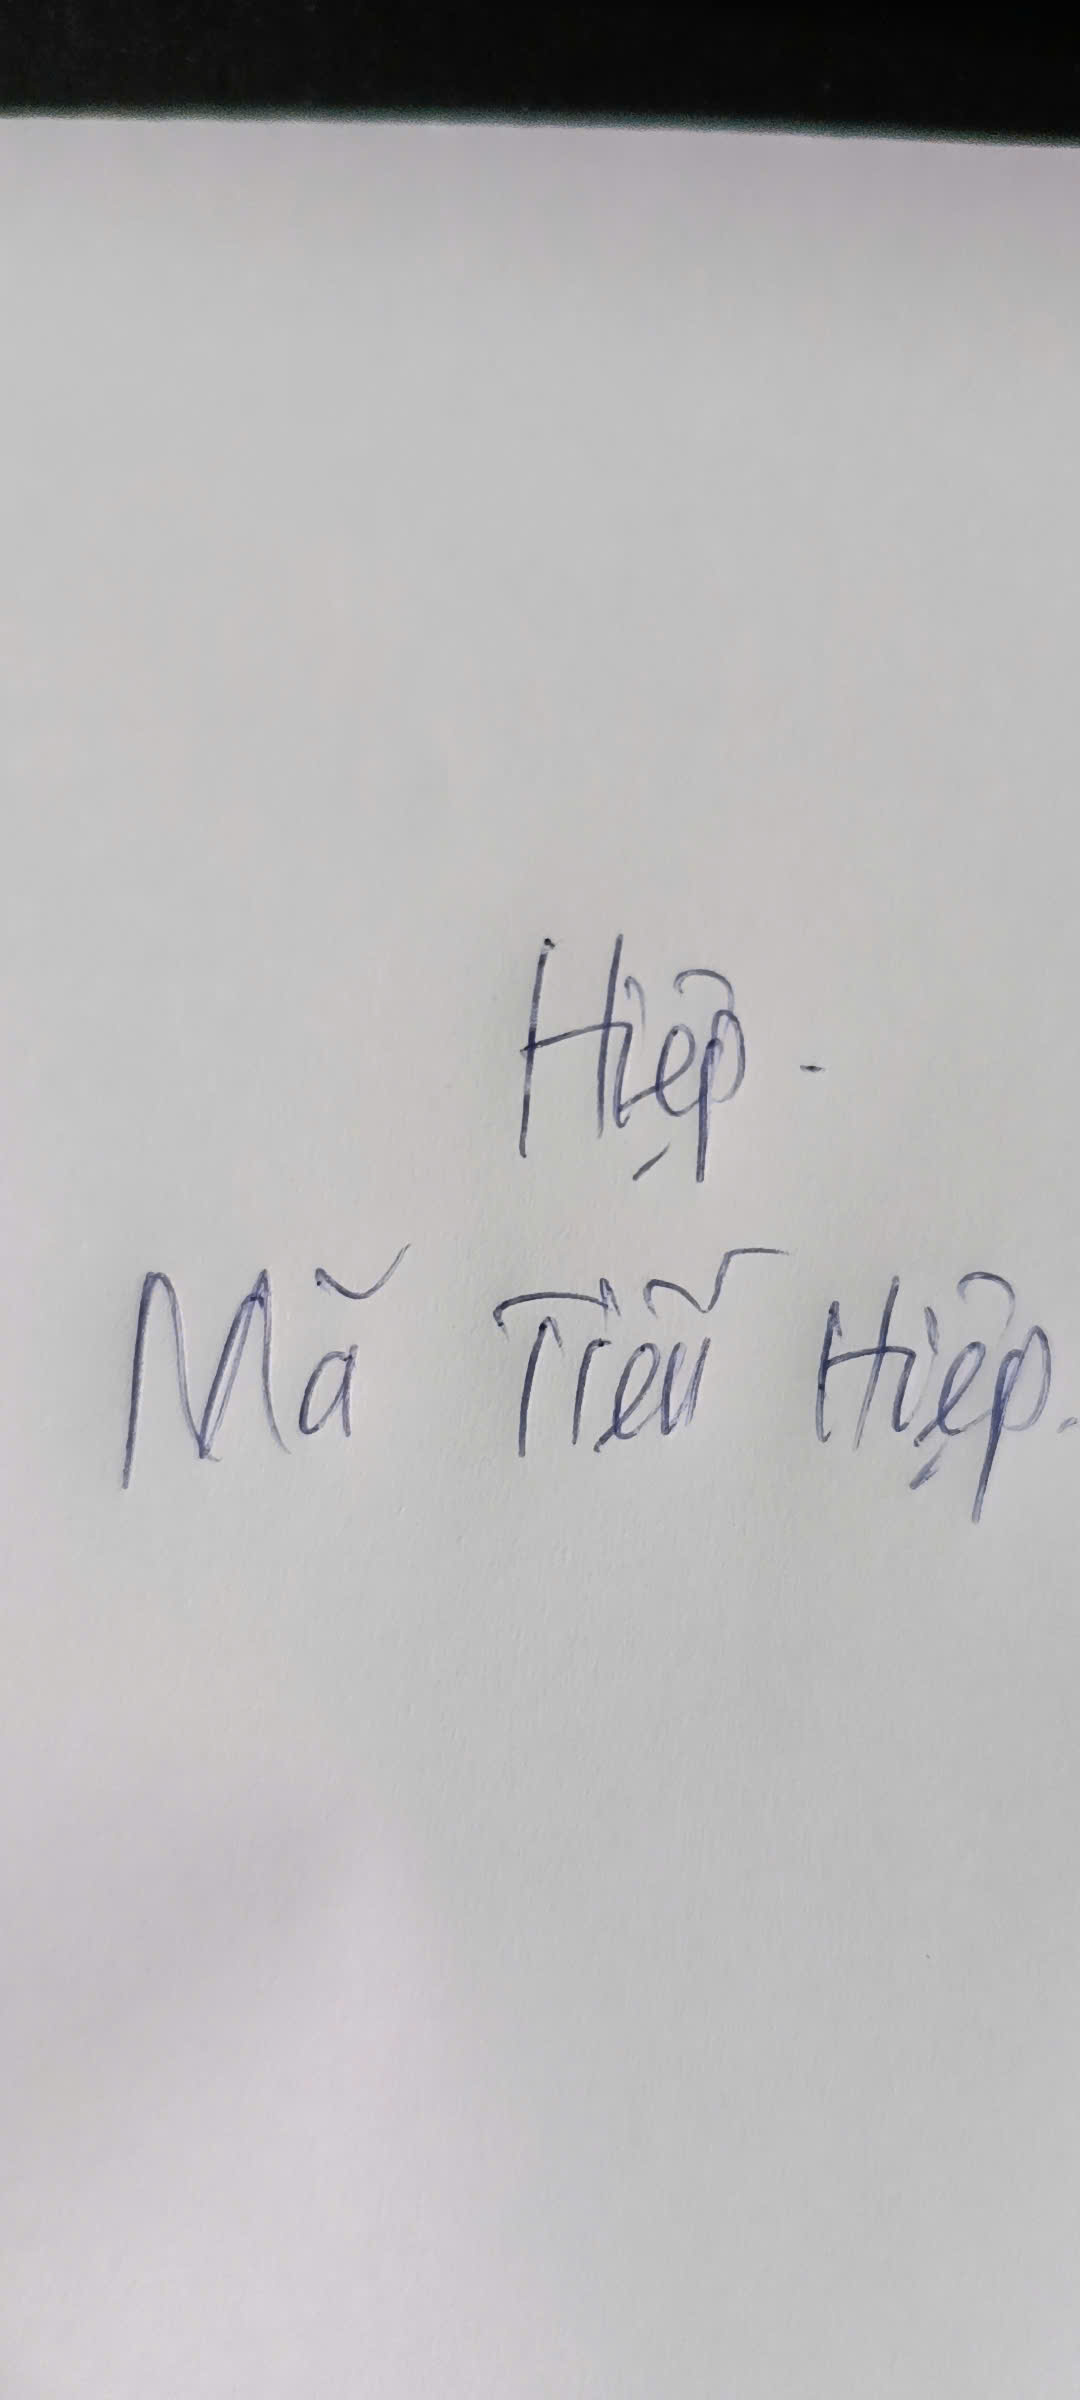 Hiệp.
Mã Tiễu Hiệp.